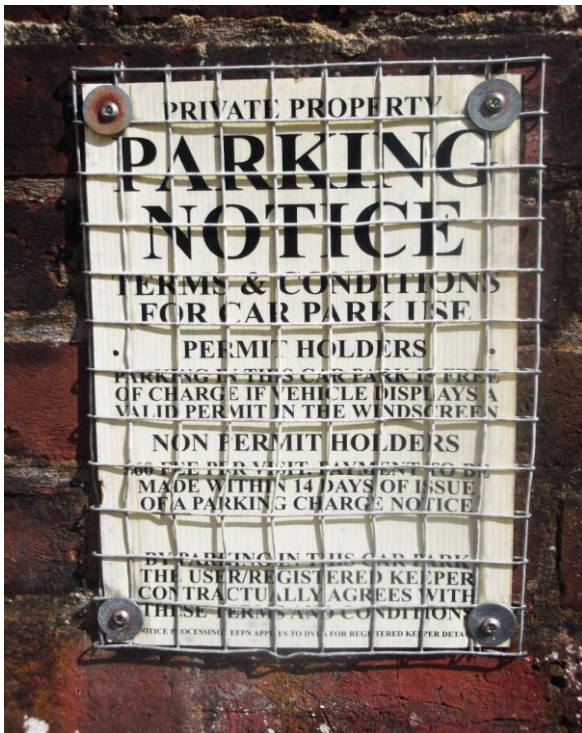 PRIVATE PROPERTY
PARKING
NOTICE
TERMS & CONDITIONS
FOR CAR PARK USE
PERMIT HOLDERS
PARKING IN THIS CAR PARK IS FREE
OF CHARGE IF VEHICLE DISPLAYS A
VALID PERMIT IN THE WINDSCREEN
NON PERMIT HOLDERS
£60 FEE PER VISIT. PAYMENT TO BE
MADE WITHIN 14 DAYS OF ISSUE
OF A PARKING CHARGE NOTICE
BY PARKING IN THIS CAR PARK
THE USER/REGISTERED KEEPER
CONTRACTUALLY AGREES WITH
THESE TERMS AND CONDITIONS
NOTICE PROCESSING: EFPN APPLIES TO DVLA FOR REGISTERED KEEPER